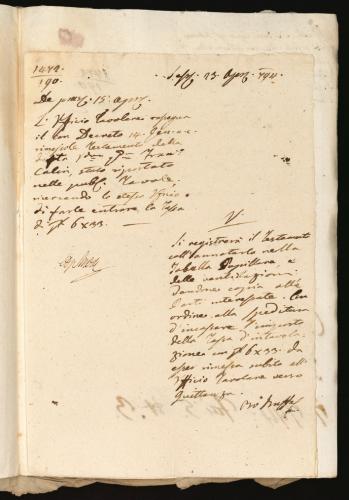 1472
190
23 Agos. 794
De pmo. 15. Agos.
L'Ufficio Tavolare rassegna
il con Decreto 14. Gen
rimessole Testamento della
stato riportato
nelle pubb. Tavole,
di farle entrare la Tassa
di f 6 x 33.
V
Si registrerà il Testamento
coll'annotarlo nella
Tabella Pupillare e
delle ventilazioni
dandone copia alle
Parti interessate. Con
ordine alla speditura
d'incassare l'importo
della Tassa d'intavola-
zione in f 6 x 33. da
esser rimessa subito all'
Ufficio Tavolare verso
Quittanza.